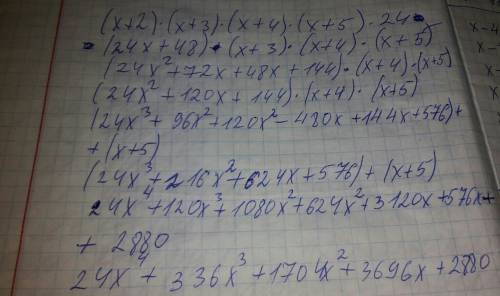 (x+2)·(x+3)·(x+4)·(x+5)·24
(24x+48)·(x+3)·(x+4)·(x+5)
(24x²+72x+48x+144)·(x+4)·(x+5)
(24x²+120x+144)·(x+4)·(x+5)
(24x³+96x²+120x²-480x+144x+576)+
+(x+5)
(24x³+216x²+624x+576)+(x+5)
24x⁴+120x³+1080x²+624x²+3120x+576x+
+2880
24x⁴+336x³+1704x²+3696x+2880
x-4
x-
x